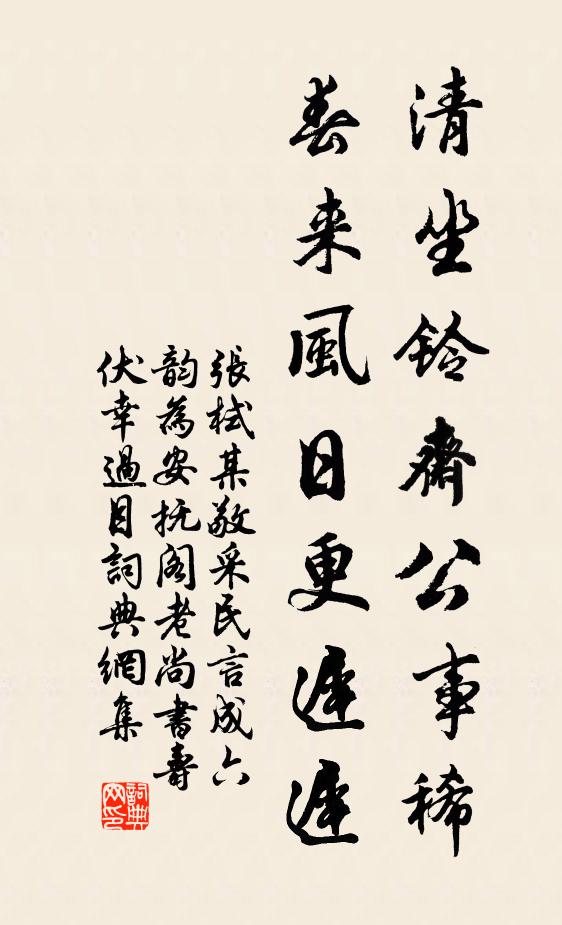 清坐鈴齋公事稀
春来風日更遲遲
張栻某敬采民言成六
韵為安抚阁老尚書壽
伏幸過目詞典網集
詞典
网印